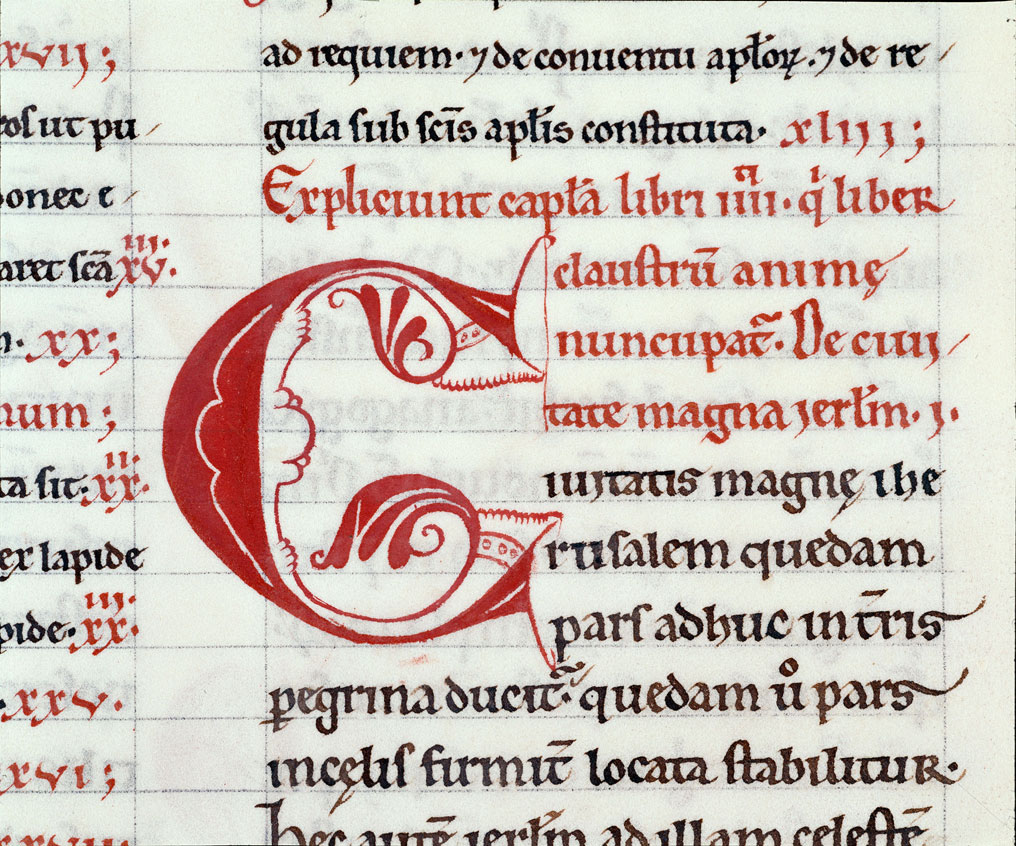 xvij;
rosut pu
donec e
aret scā xv. iii.
n. xx;
num;
ta sit. xx. ii.
ex lapide
pide. xx. iii.
xxv.
xvi;
ad requiem. ⁊ de conuentu apl̄oꝝ. ⁊ de re
gula sub scīs apl̄is constituta. xliij;
Expliciunt capl̄a libri iiii. q̇ liber
claustrū animę
nuncupat̄. De ciui
tate magna ierl̄m. j.
Ciuitatis magnę ihe
rusalem quedam
pars adhuc in t̄ris
ꝑegrina ducit᷑. quedam uͦ pars
in cęlis firmit̄ locata stabilitur.
hec autē ierl̄m ad illam celestē